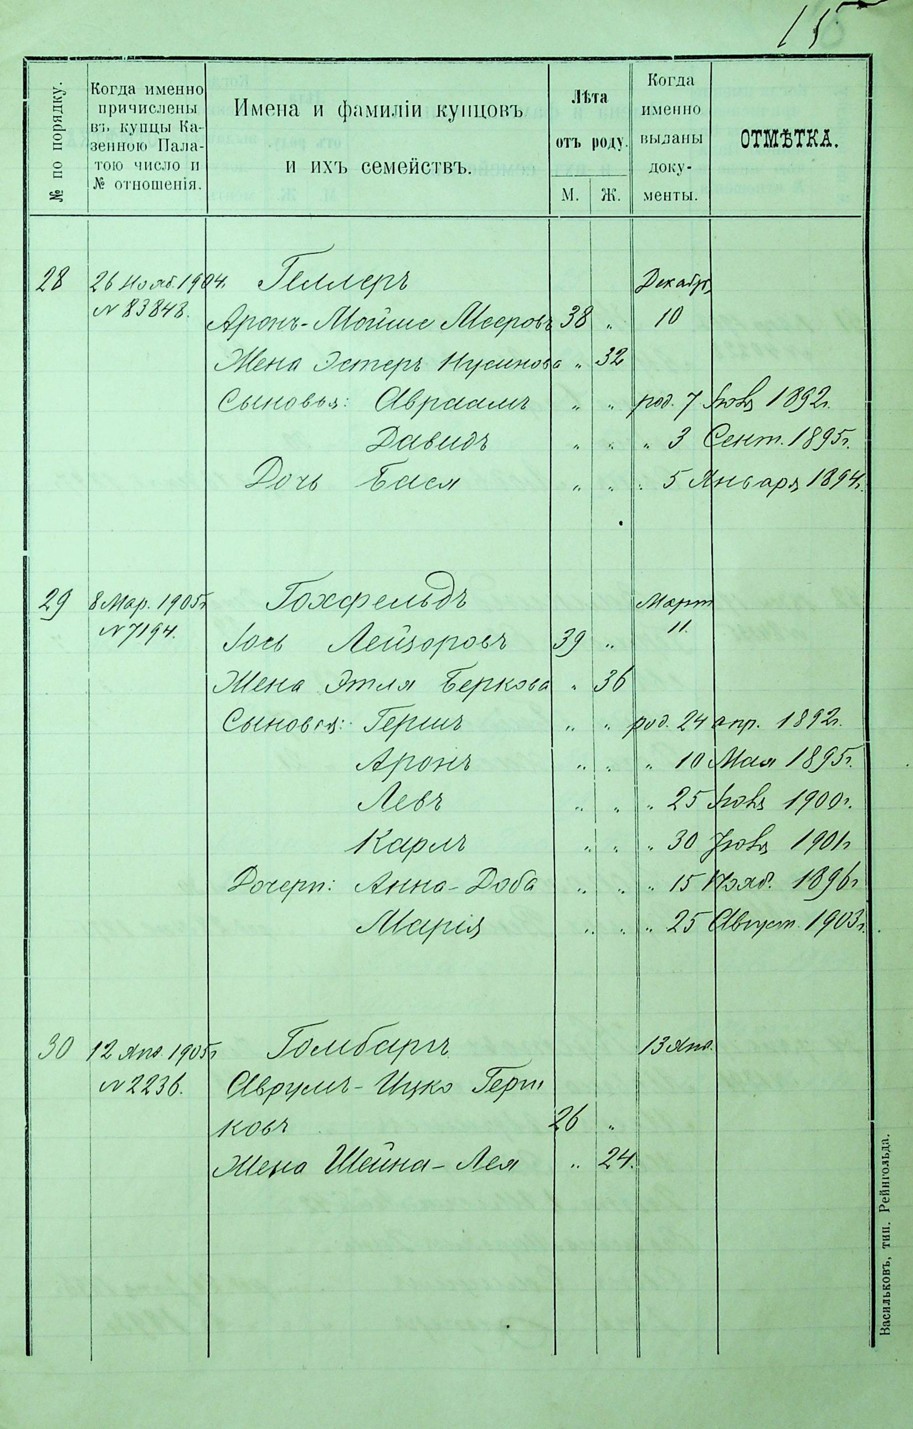 15
№ по порядку.
Когда именно
причислены
въ купцы Ка-
зенною Пала-
тою число и
№ отношенія.
Имена и фамиліи купцовъ
и ихъ семействъ.
Лѣта
отъ роду.
М. Ж.
Когда
именно
выданы
доку-
менты.
ОТМѢТКА.
28 26 Нояб. 1904 Геллеръ Декабр.
№ 83848. Аронъ-Мойше Мееровъ 38 „ 10
Жена Эстеръ Нусинова „ 32
Сыновья: Авраамъ „ „ род. 7 1892г.
Давидъ „ „ „ 3 Сент. 1895г.
Дочь Бася „ „ „ 5 Января 1894г.
29 8 Мар. 1905г. Гохфельдъ Март
№ 7194. Іось Лейзоровъ 39 „ 11.
Жена Этля Беркова „ 36
Сыновья: Гершъ „ „ род. 24 апр. 1892г.
Аронъ „ „ „ 10 Мая 1895г.
Левъ „ „ „ 25 1900г.
Карлъ „ „ „ 30 1901г
Дочери: Анна-Доба „ „ „ 15 Нояб. 1896г
Марія „ „ „ 25 Август. 1903г.
30 12 Янв. 1905г Гомбаргъ 13 Янв.
№ 2236. Аврумъ-Ицко Герш
ковъ 26 „
Жена Шейна-Лея „ 24.
Васильковъ, тип. Рейнгольда.